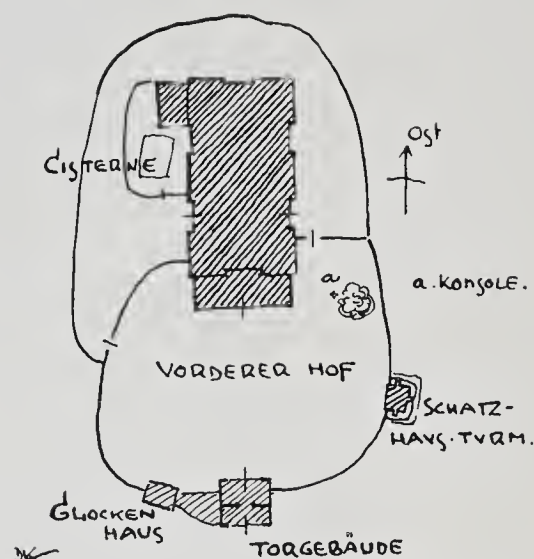 Ost
CISTERNE
a
a. KONSOLE.
VORDERER HOF
SCHATZ-
HAUS·TURM.
GLOCKEN
HAUS
TORGEBÄUDE